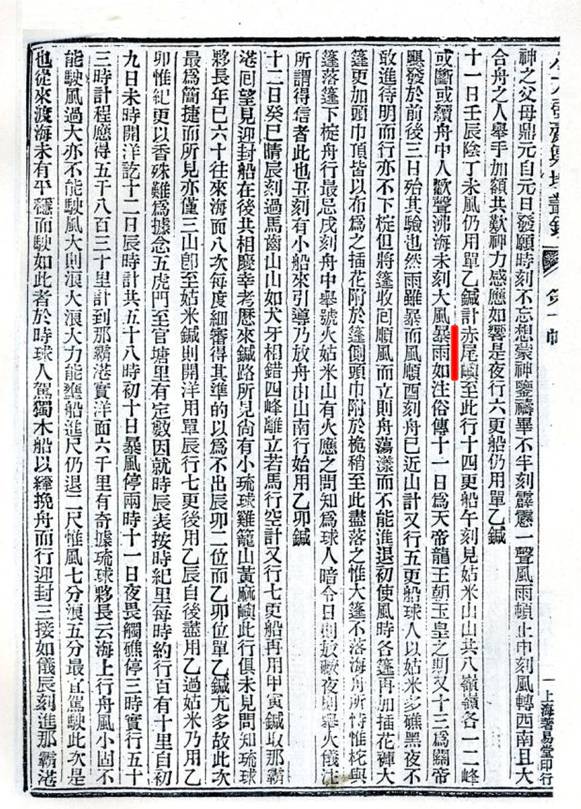 小方壺齋輿地叢鈔 第十帙
神之父母鼎元自元日發願時刻不忘想蒙神鑒禱畢不半刻霹靂一聲風雨頓止申刻風轉西南且大
合舟之人舉手加額共歎神力感應如響是夜行六更船仍用單乙鍼
十一日壬辰陰丁未風仍用單乙鍼計赤尾嶼至此行十四更船午刻見姑米山山共八嶺嶺各一二峰
或斷或續舟中人歡聲沸海未刻大風暴雨如注俗傳十一日爲天帝龍王朝玉皇之期又十三爲關帝
颶發於前後三日殆其驗也然雨雖暴而風順酉刻舟已近山計又行五更船球人以姑米多礁黑夜不
敢進待明而行亦不下椗但將篷收回順風而立則舟蕩漾而不能進退初使風時各篷再加插花褲大
篷更加頭巾頂皆以布爲之插花附於篷側頭巾附於桅梢至此盡落之惟大篷不落海舟所恃惟柁與
篷落篷下椗舟行最忌戌刻舟中舉號火姑米山有火應之問知爲球人暗令日則放礮夜則舉火儀注
所謂得信者此也丑刻有小船來引導乃放舟由山南行始用乙卯鍼
十二日癸巳晴辰刻過馬齒山山如犬牙相錯四峰離立若馬行空計又行七更船再用甲寅鍼取那霸
港囘望見迎封船在後共相慶幸老歷來鍼路所見尙有小琉球雞籠山黃麻嶼此行俱未見問知琉球
夥長年已六十往來海面八次每度細審得其準的以爲不出辰卯二位而乙卯位單乙鍼尤多故此次
最爲簡捷而所見亦僅三山卽至姑米鍼則開洋用單辰行七更後用乙辰自後盡用乙過姑米乃用乙
卯惟紀更以香殊難爲據念五虎門至官塘里有定數因就時辰表按時紀里每時約行百有十里自初
九日未時開洋訖十二日辰時計共五十八時初十日暴風停兩時十一日夜畏觸礁停三時實行五十
三時計程應得五千八百三十里計到那霸港實洋面六千里有奇據琉球夥長云海上行舟風小固不
能駛風過大亦不能駛風大則浪大浪大力能壅船進尺仍退二尺惟風七分浪五分最宜駕駛此次是
也從來渡海未有平穩而駛如此者於時球人駕獨木船以縴挽舟而行迎封三接如儀辰刻進那霸港
上海著易堂印行